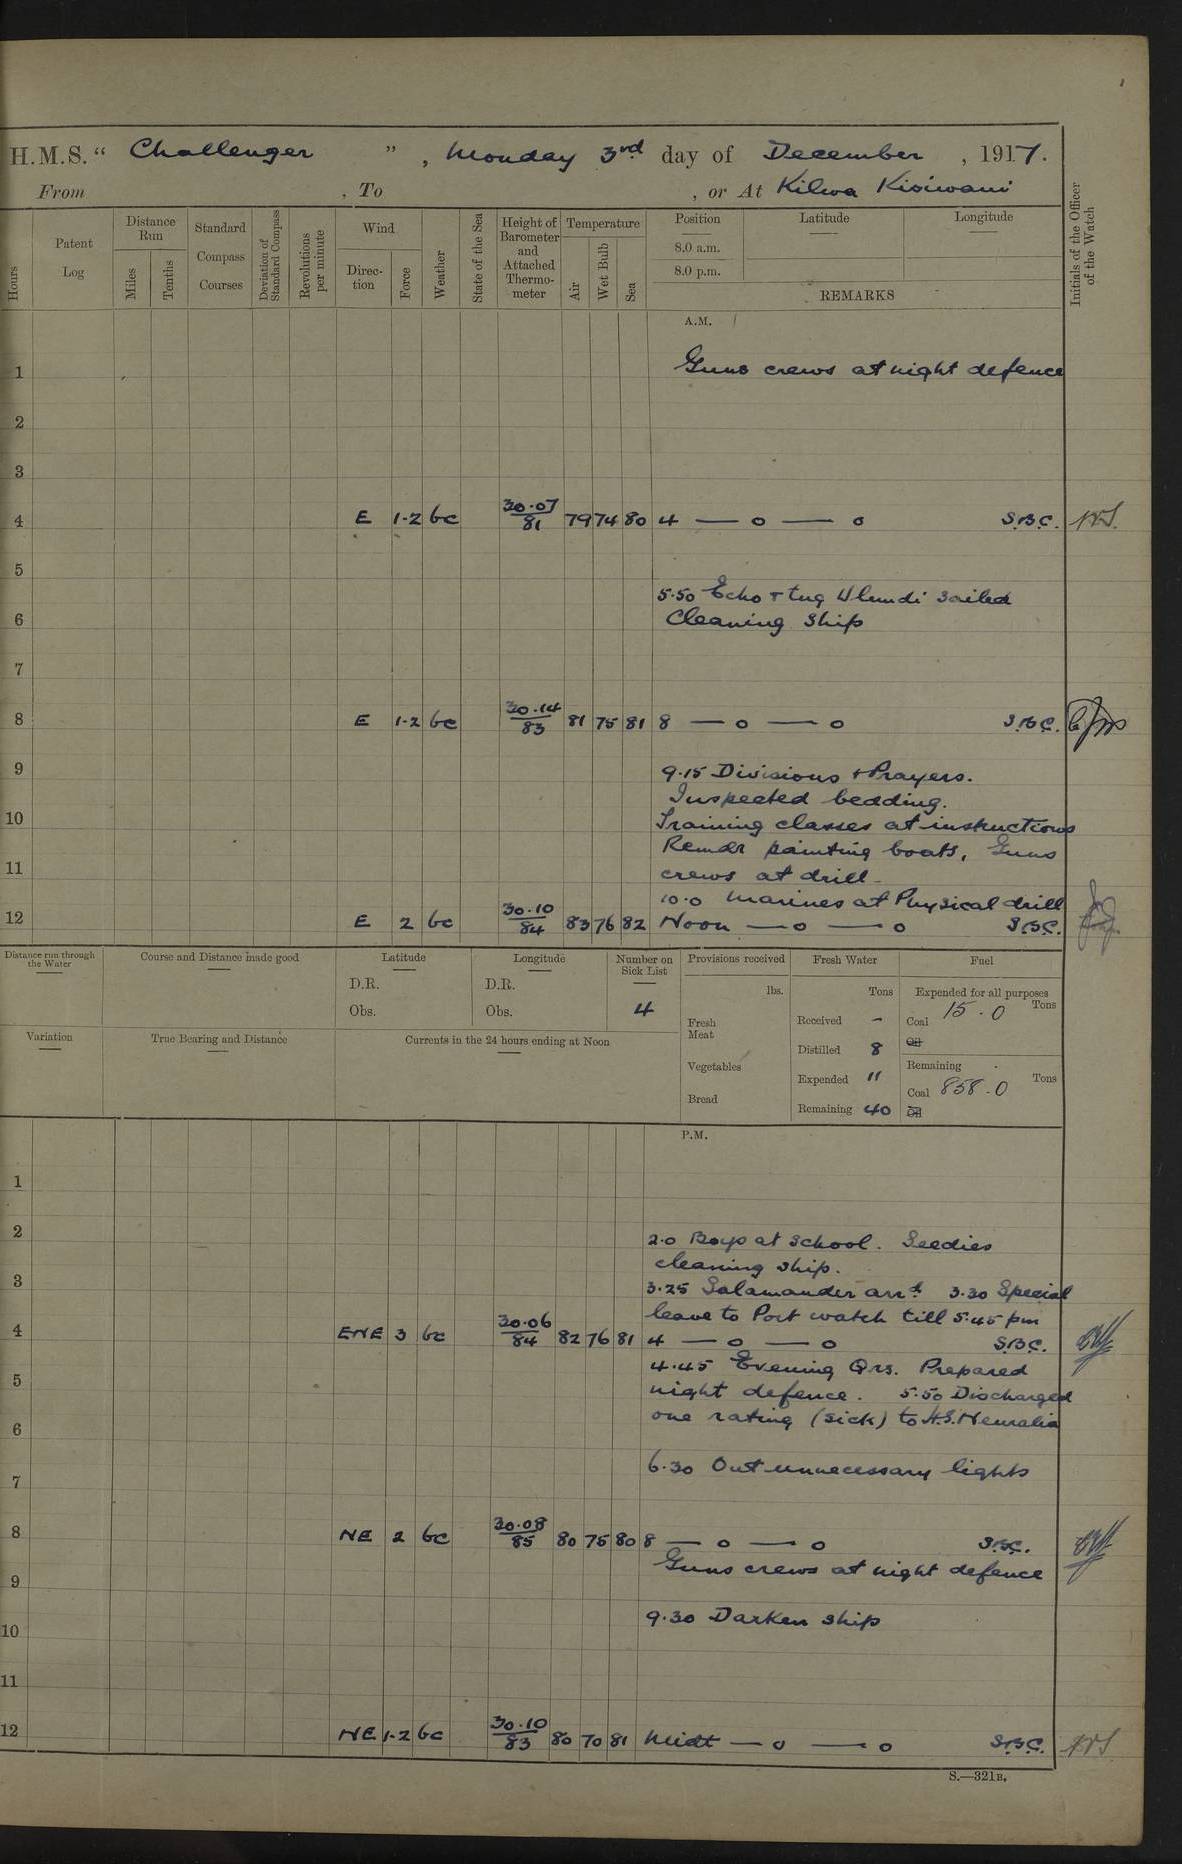 H.M.S. “ Challenger ” , Monday 3rd day of December , 1917.
From , To , or At Kilwa Kisiwani
Hours
Patent Log
Distance Run
Miles
Tenths
Standard Compass Courses
Deviation of Standard Compass
Revolutions per minute
Wind
Direc- tion
Force
Weather
State of the Sea
Height of Barometer and Attached Thermo- meter
Temperature
Air
Wet Bulb
Sea
Position
8.0 a.m.
8.0 p.m.
Latitude
Longitude
REMARKS
Initials of the Officer of the Watch
A.M.
1 Guns crews at night defence
2
3
4 E 1-2 bc 30.07 81 79 74 80 4 — o — o S.B.C.
5
5.50 Echo + tug Ulundi sailed
6 Cleaning Ship
7
8 E 1-2 bc 30.14 83 81 75 81 8 — o — o S.B.C.
9 9.15 Divisions + Prayers.
Inspected bedding.
10 Training classes at instructions
Remdr painting boats, Guns
11 crews at drill
10.0 Marines at Physical drill
12 E 2 bc 30.10 84 83 76 82 Noon — o — o S.B.C.
Distance run through the Water
Course and Distance made good
Latitude
D.R.
Obs.
Longitude
D.R.
Obs.
Number on Sick List
4
Provisions received
lbs.
Fresh Meat
Vegetables
Bread
Fresh Water
Tons
Received -
Distilled 8
Expended 11
Remaining 40
Fuel
Expended for all purposes
Coal 15.0 Tons
Oil
Remaining
Coal 858.0 Tons
Oil
Variation
True Bearing and Distance
Currents in the 24 hours ending at Noon
P.M.
1
2 2.0 Boys at School. Seedies
cleaning ship.
3 3.25 Salamander arrd. 3.30 Special
leave to Port watch till 5.45 pm
4 ENE 3 bc 30.06 84 82 76 81 4 — o — o S.B.C.
4.45 Evening Qrs. Prepared
5 night defence. 5.50 Discharged
one rating (sick) to H.S. Neuralia
6
6.30 Out unnecessary lights
7
8 NE 2 bc 30.08 85 80 75 80 8 — o — o S.B.C.
Guns crews at night defence
9
9.30 Darken ship
10
11
12 NE 1-2 bc 30.10 83 80 70 81 Midt — o — o S.B.C.
S.—321B.